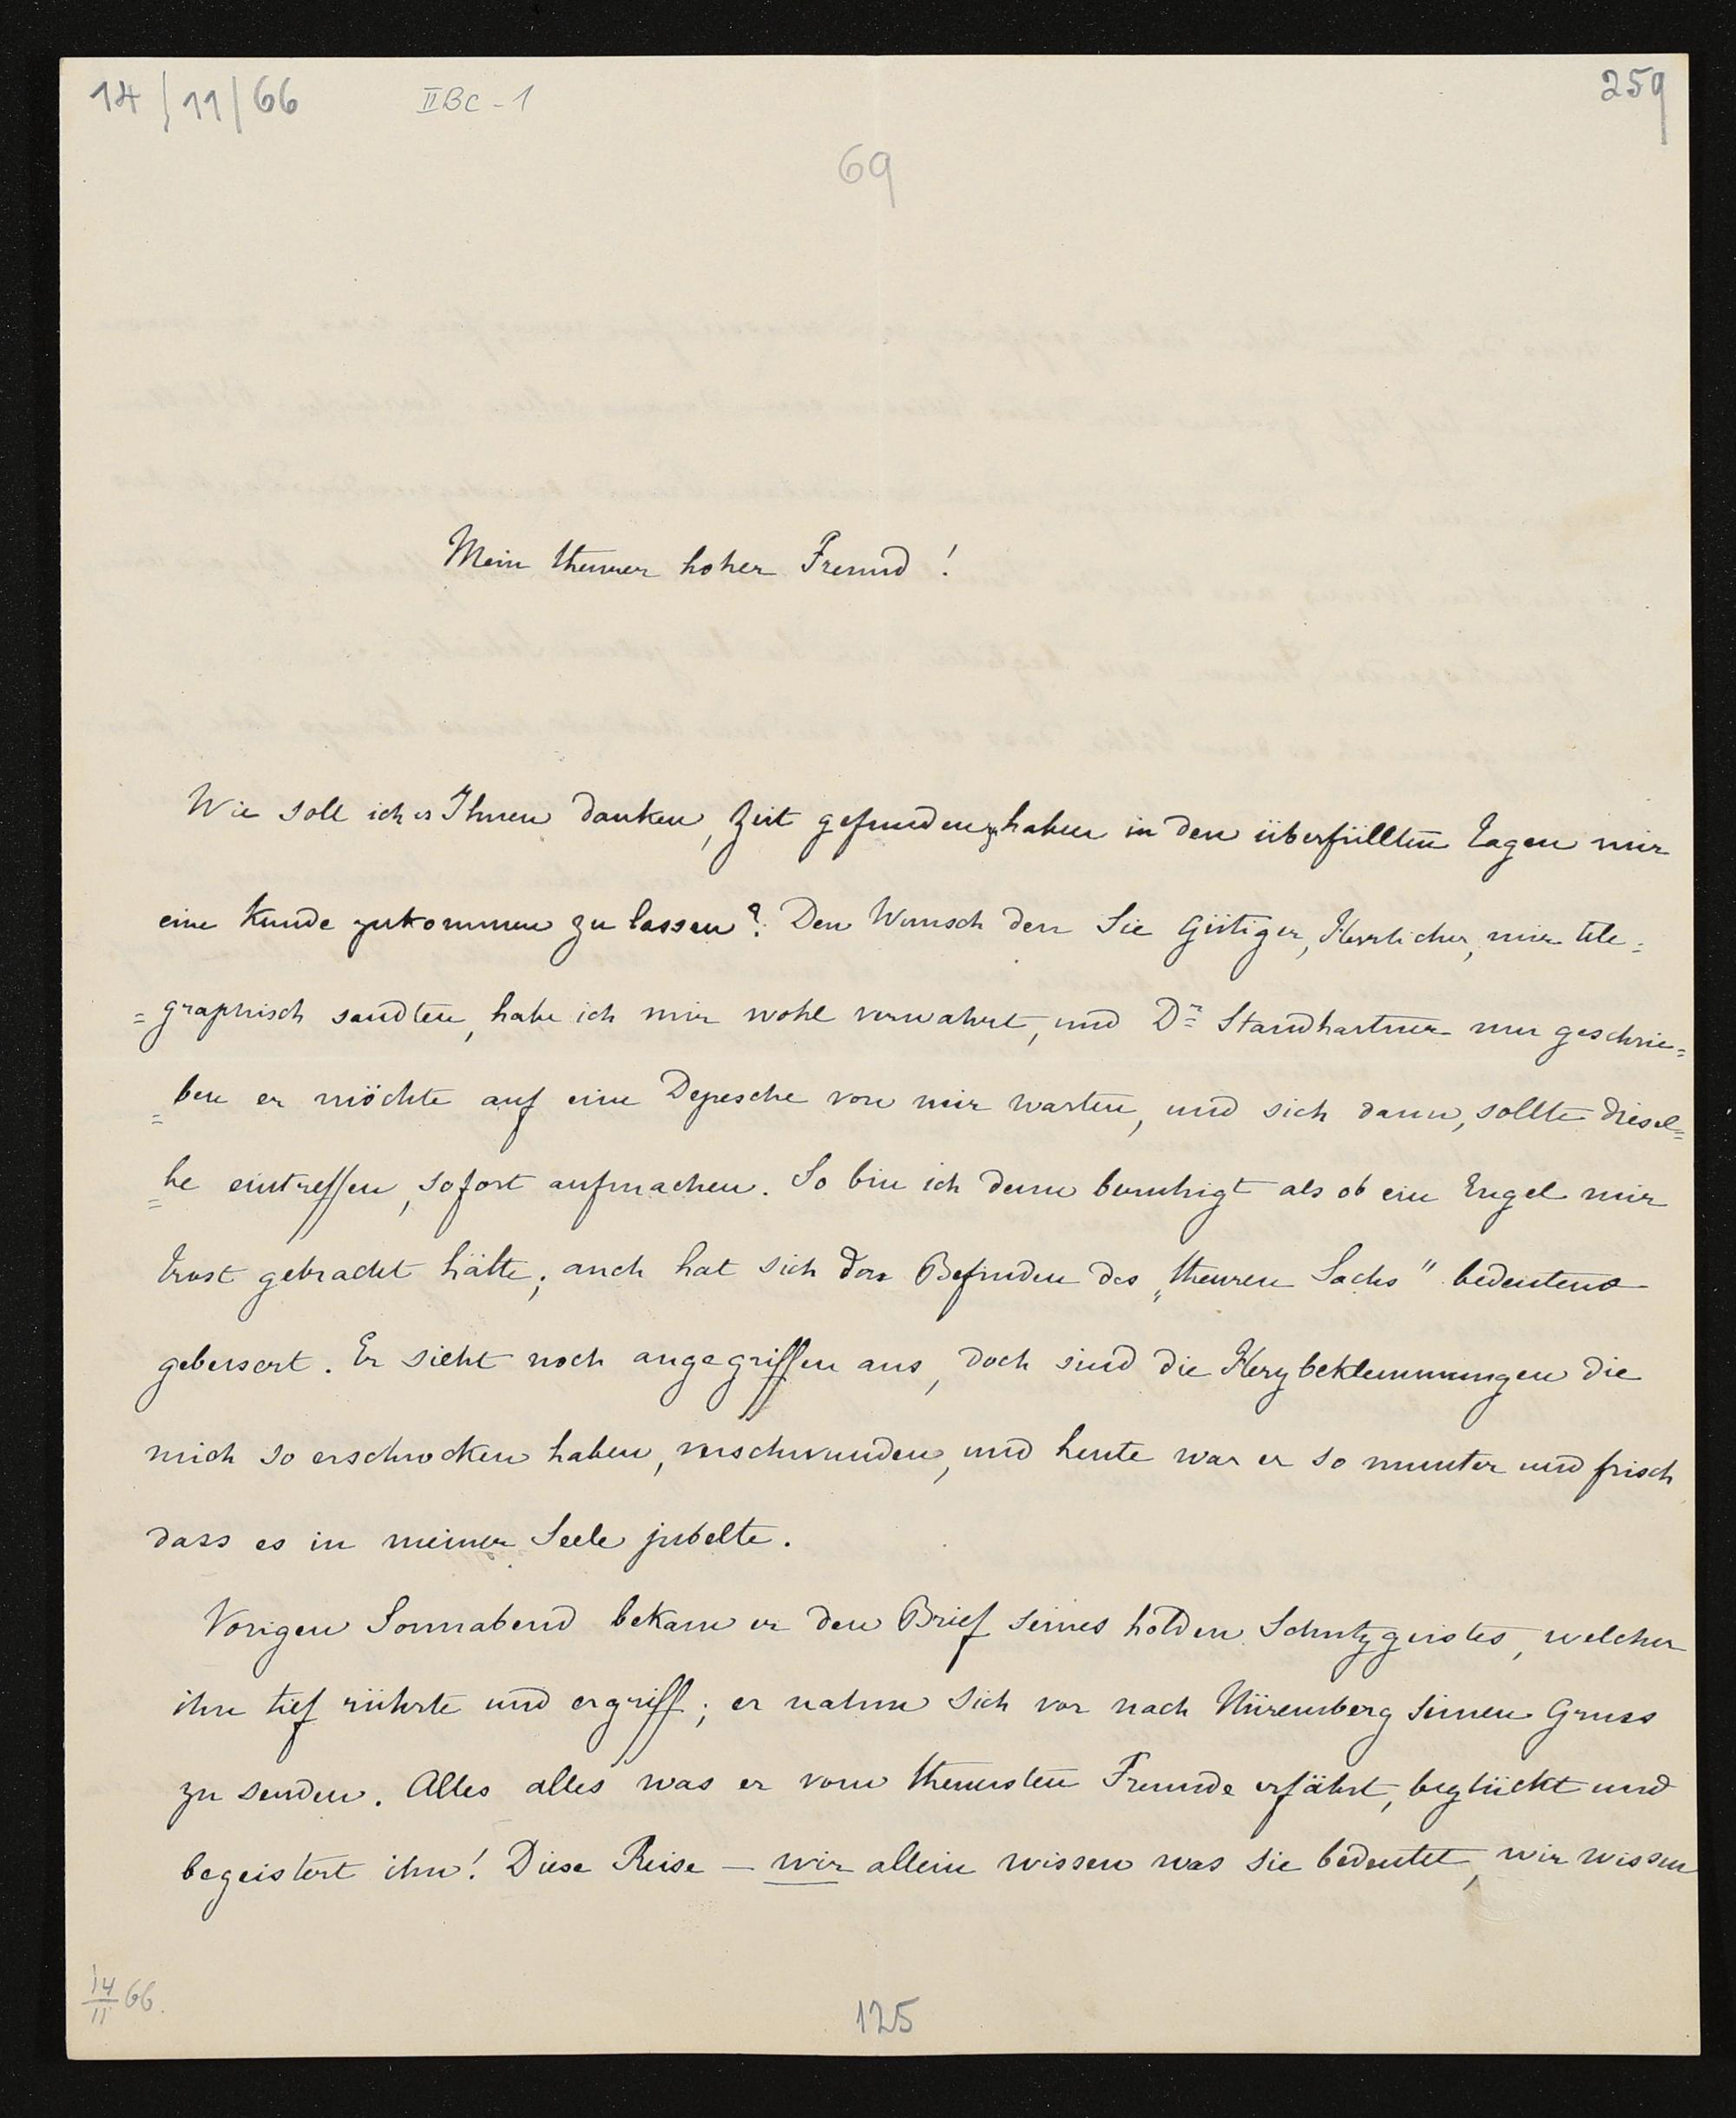 14/11/66 IIBc-1 259
69
Mein theurer hoher Freund!
Wie soll ich es Ihnen danken, Zeit gefunden zu haben in den überfüllten Tagen mir
eine Kunde zukommen zu lassen? Den Wunsch den Sie Gütiger, Herrlicher, mir tele=
=graphisch sandten, habe ich mir wohl verwahrt, und Dr= Standhartner nur geschrie=
=ben er möchte auf eine Depesche von mir warten, und sich dann, sollte diesel=
=be eintreffen, sofort aufmachen. So bin ich denn beruhigt als ob ein Engel mir
Trost gebracht hätte; auch hat sich das Befinden des „theuren Sachs" bedeutend
gebessert. Er sieht noch angegriffen aus, doch sind die Herzbeklemmungen die
mich so erschrocken haben, verschwunden, und heute war er so munter und frisch
dass es in meiner Seele jubelte.
Vorigen Sonnabend bekam er den Brief seines holden Schutzgeistes, welcher
ihn tief rührte und ergriff; er nahm sich vor nach Nüremberg seinen Gruss
zu senden. Alles alles was er vom theuersten Freunde erfährt, beglückt und
begeistert ihn! Diese Reise — wir allein wissen was sie bedeutet, wir wissen
14/11 66.
125